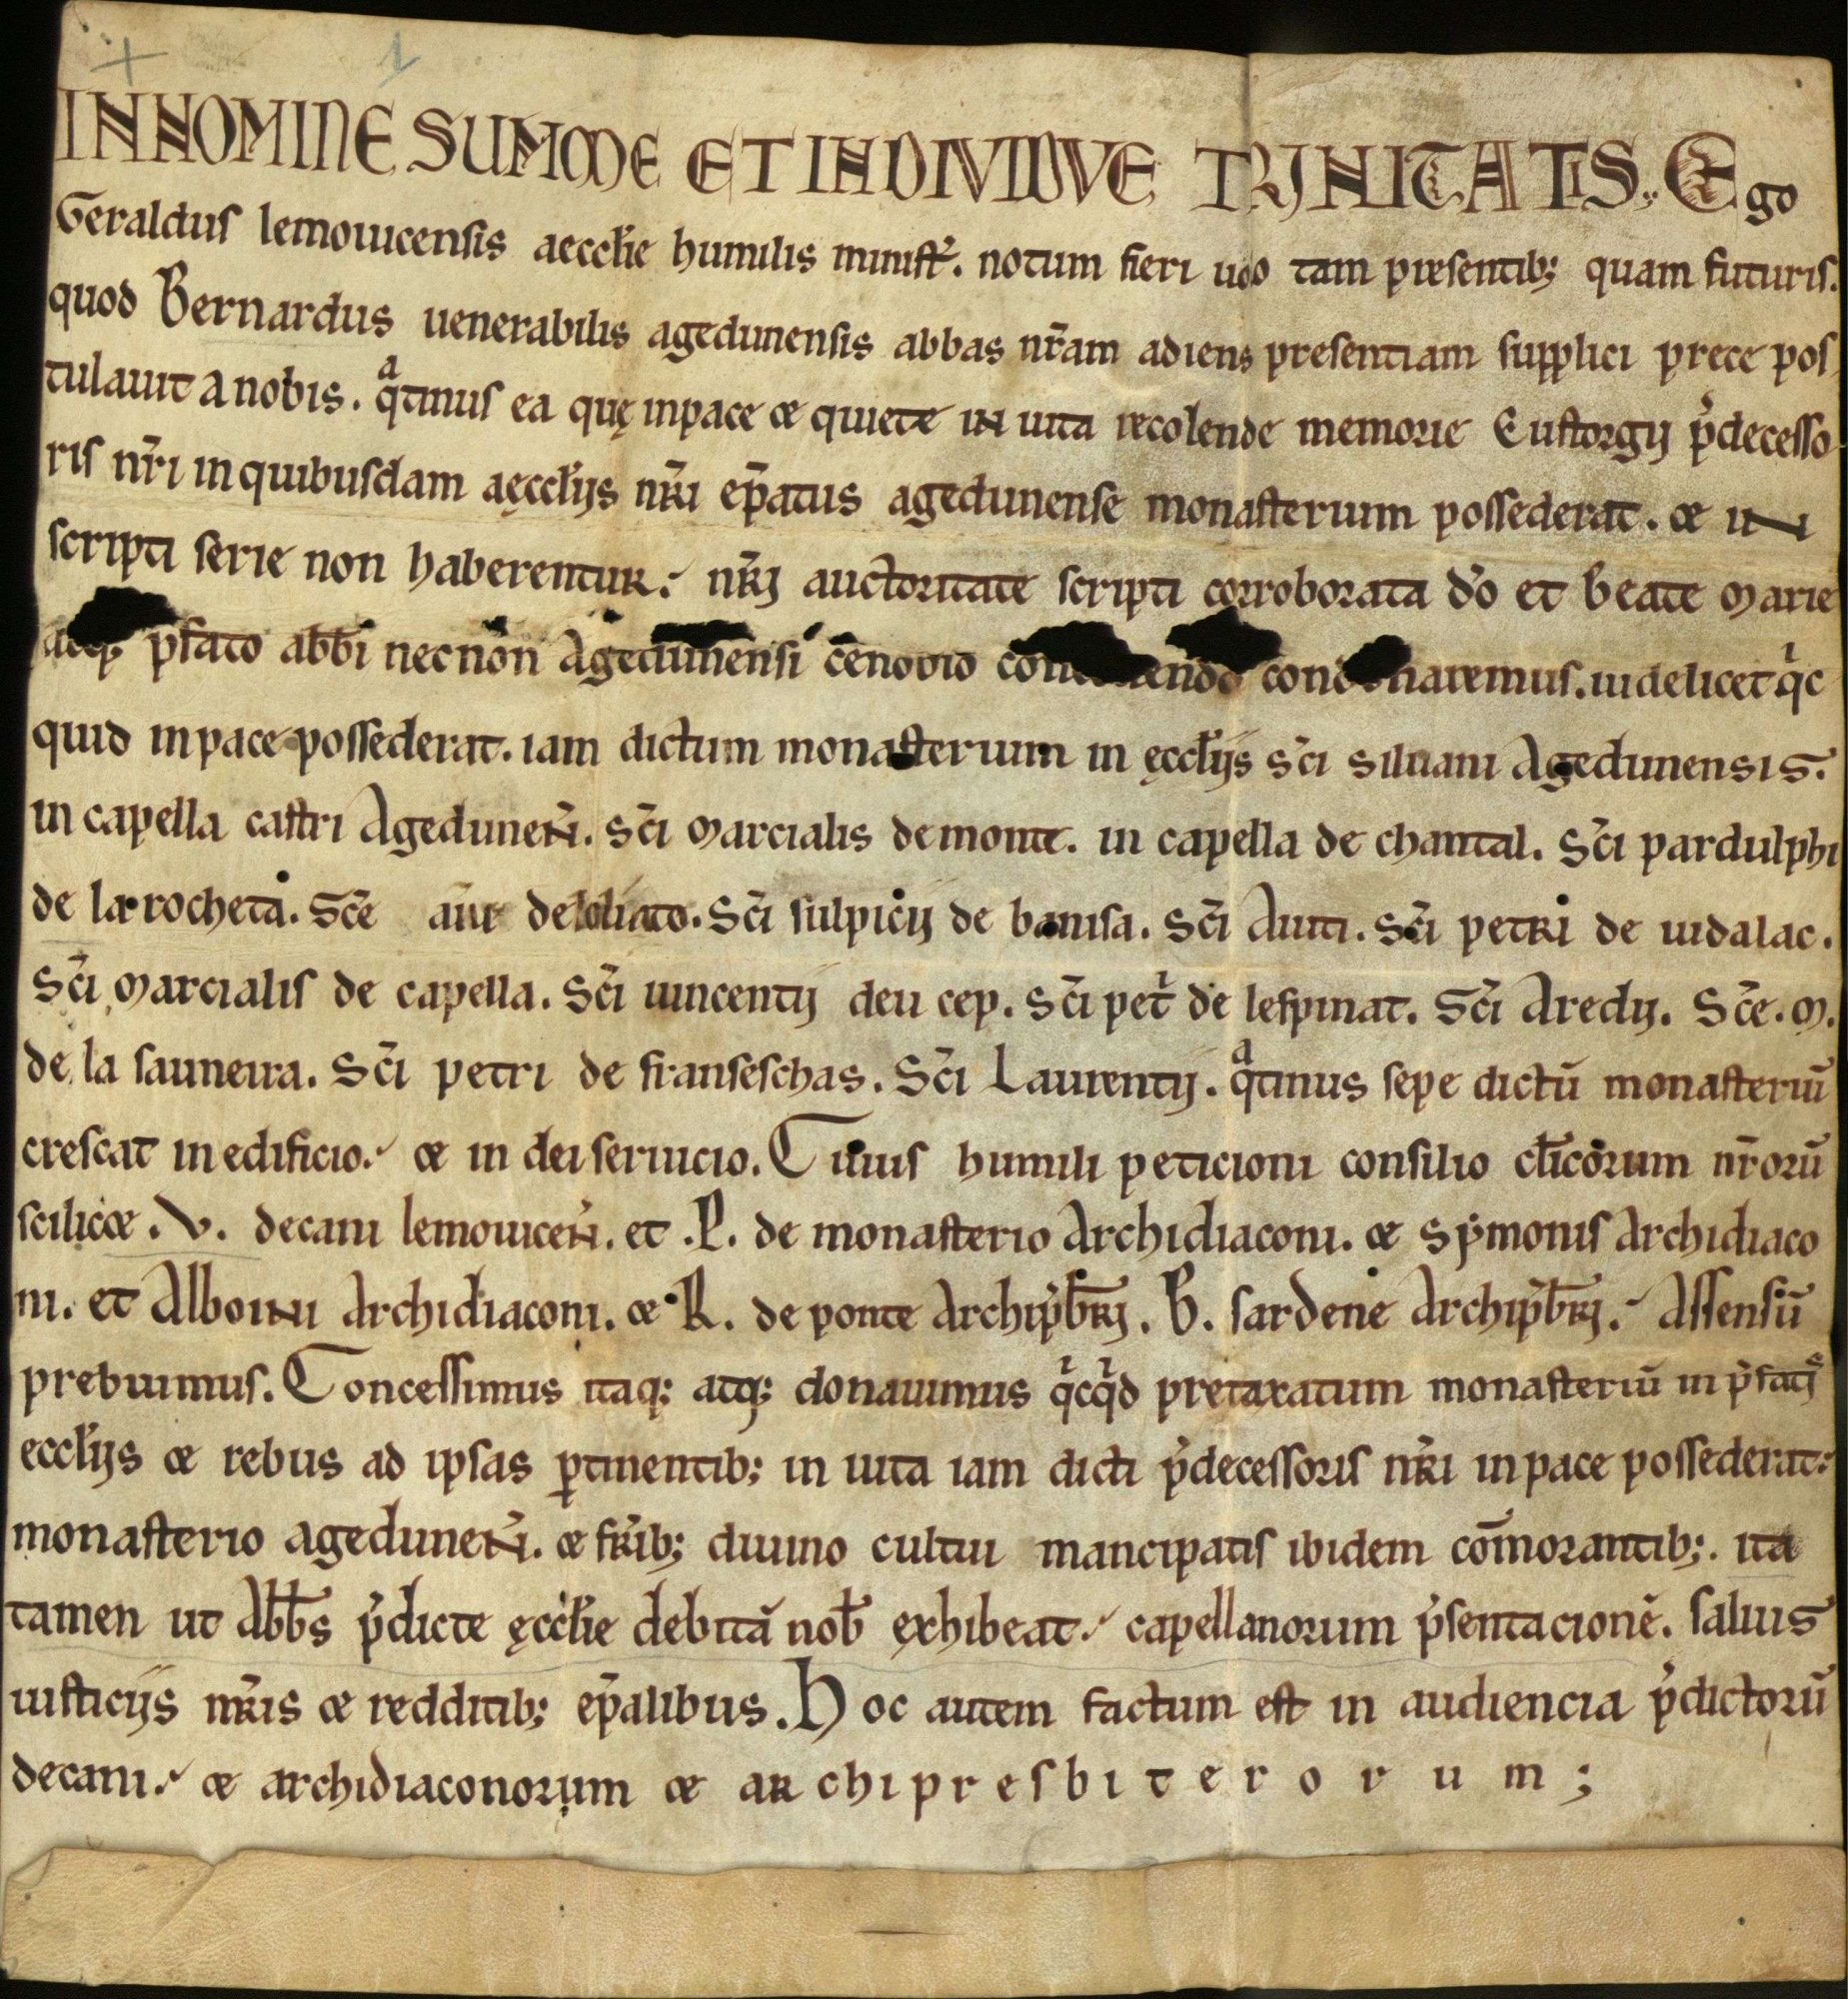 1
INNOMINE SUMME ET INDIVIDVE TRINITATIS. Ego
Geraldus lemouicensis aecclie humilis ministr̄. notum fieri uolo tam presentib; quam futuris.
quod Bernardus uenerabilis agedunensis abbas nr̄am adiens presentiam supplici prece pos
tulauit a nobis. qͣtinus ea quę inpace & quiete in uita recolende memorie Eustorgij p̄decesso
ris nr̄i in quibusdam aęccl̄ijs nr̄i ep̄atus agedunense monasterium possederat. & in
scripti serie non haberentur. nr̄j auctoritate scripti corroborata d̄o et beate Marie
atq; p̄fato abb̄i necnon Agedunensi cenobio condonaremus. uidelicet qͥc
quid inpace possederat. iam dictum monasterium in ęccl̄ijs sc̄i siluani Agedunensis.
in capella castri Agedunen̄. sc̄i Marcialis demonte. in capella de chantal. sc̄i pardulphi
de la rocheta. Sc̄e de loliato. Sc̄i sulpicij de banisa. sc̄i Auiti. Sc̄i petri de uidalac.
Sc̄i Marcialis de capella. Sc̄i uincentij deu cep. Sc̄i pet̄ de lespinat. Sc̄i Aredij. Sc̄e. M.
de la sauneira. Sc̄i petri de franseschas. Sc̄i Laurentij. qͣtinus sepe dictū monasteriū
crescat in edificio. & in dei seruicio. Cuius humili peticioni consilio cl̄icorum nr̄orū
scilic&. V. decani lemouicen̄. et .P. de monasterio Archidiaconi. & Sẏmonis Archidiaco
ni. et Alboini Archidiaconi. & R. de ponte Archip̄br̄j. B. sardene Archip̄br̄j. Assensū
prebuimus. Concessimus itaq; atq; donauimus qͥcqͥd pretaxatum monasteriū in p̄fatis
eccl̄ijs & rebus ad ipsas ꝑtinentib; in uita iam dicti p̄decessoris nr̄i inpace possederat.
monasterio agedunen̄. & fr̄ib; diuino cultui mancipatis ibidem com̄orantib;. ita
tamen ut Abb̄s p̄dicte ęccl̄ie debitā nob̄ exhibeat. capellanorum p̄sentacionē. saluis
iusticijs nr̄is & redditib; ep̄alibus. Hoc autem factum est in audiencia p̄dictorū
decani. & archidiaconorum & archipresbiterorum;